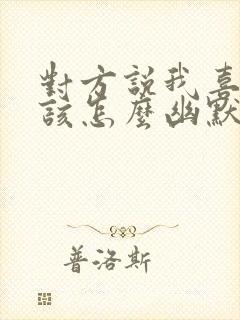 對方説我喜
該怎麼幽默
普洛斯